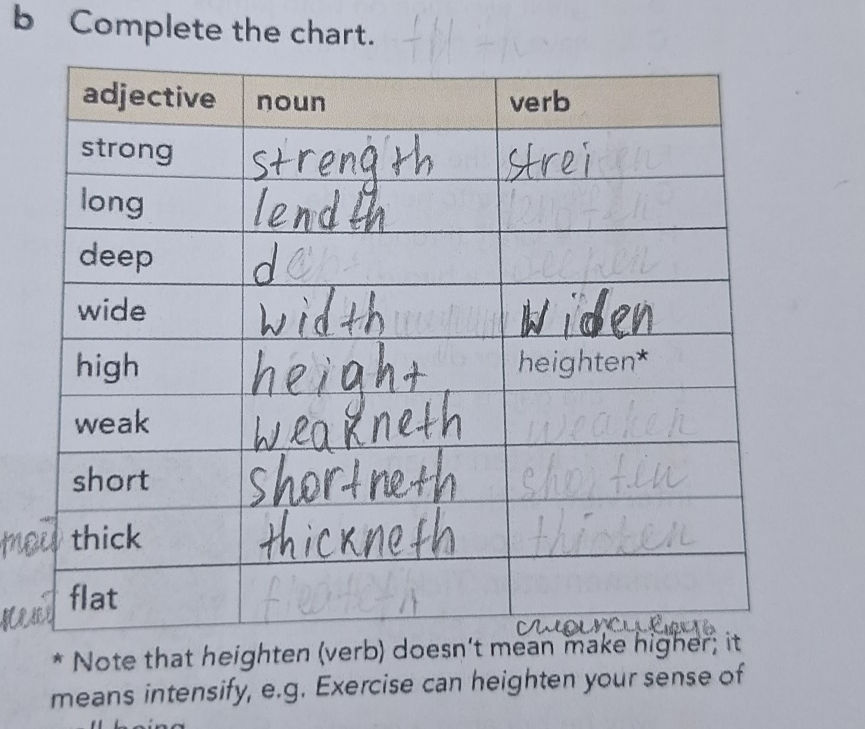 b Complete the chart.
adjective noun verb
strong strength strei
long lendth
deep d deepen
wide width widen
high height heighten*
weak weakneth weaken
short shortneth shorten
thick thickneth
flat
* Note that heighten (verb) doesn't mean make higher; it
means intensify, e.g. Exercise can heighten your sense of